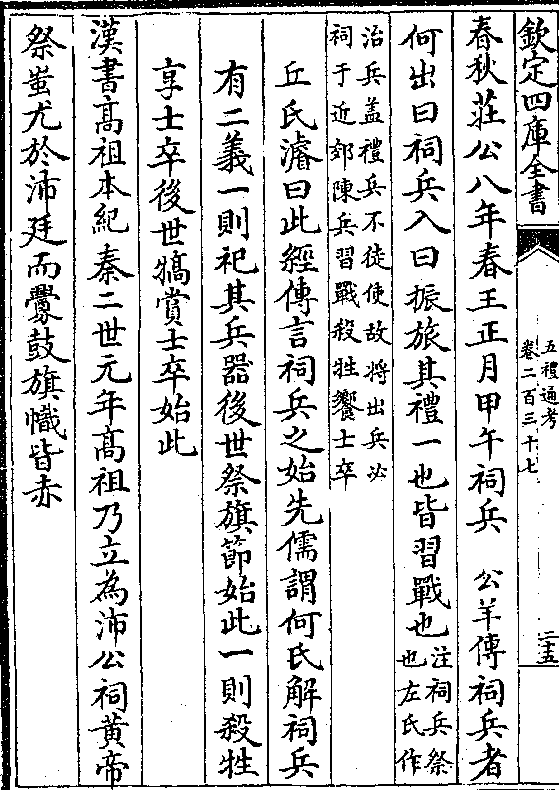 欽定四庫全書
五禮通考
卷二百三十七
二十五
春秋莊公八年春王正月甲午祠兵　公羊傳祠兵者
何出曰祠兵入曰振旅其禮一也皆習戰也注祠兵祭
也左氏作
治兵盖禮兵不徒使故將出兵必
祠于近郊陳兵習戰殺牲饗士卒
丘氏濬曰此經傳言祠兵之始先儒謂何氏解祠兵
有二義一則祀其兵器後世祭旗節始此一則殺牲
享士卒後世犒賞士卒始此
漢書髙祖本紀秦二世元年髙祖乃立為沛公祠黄帝
祭蚩尤於沛廷而釁鼓旗幟皆赤